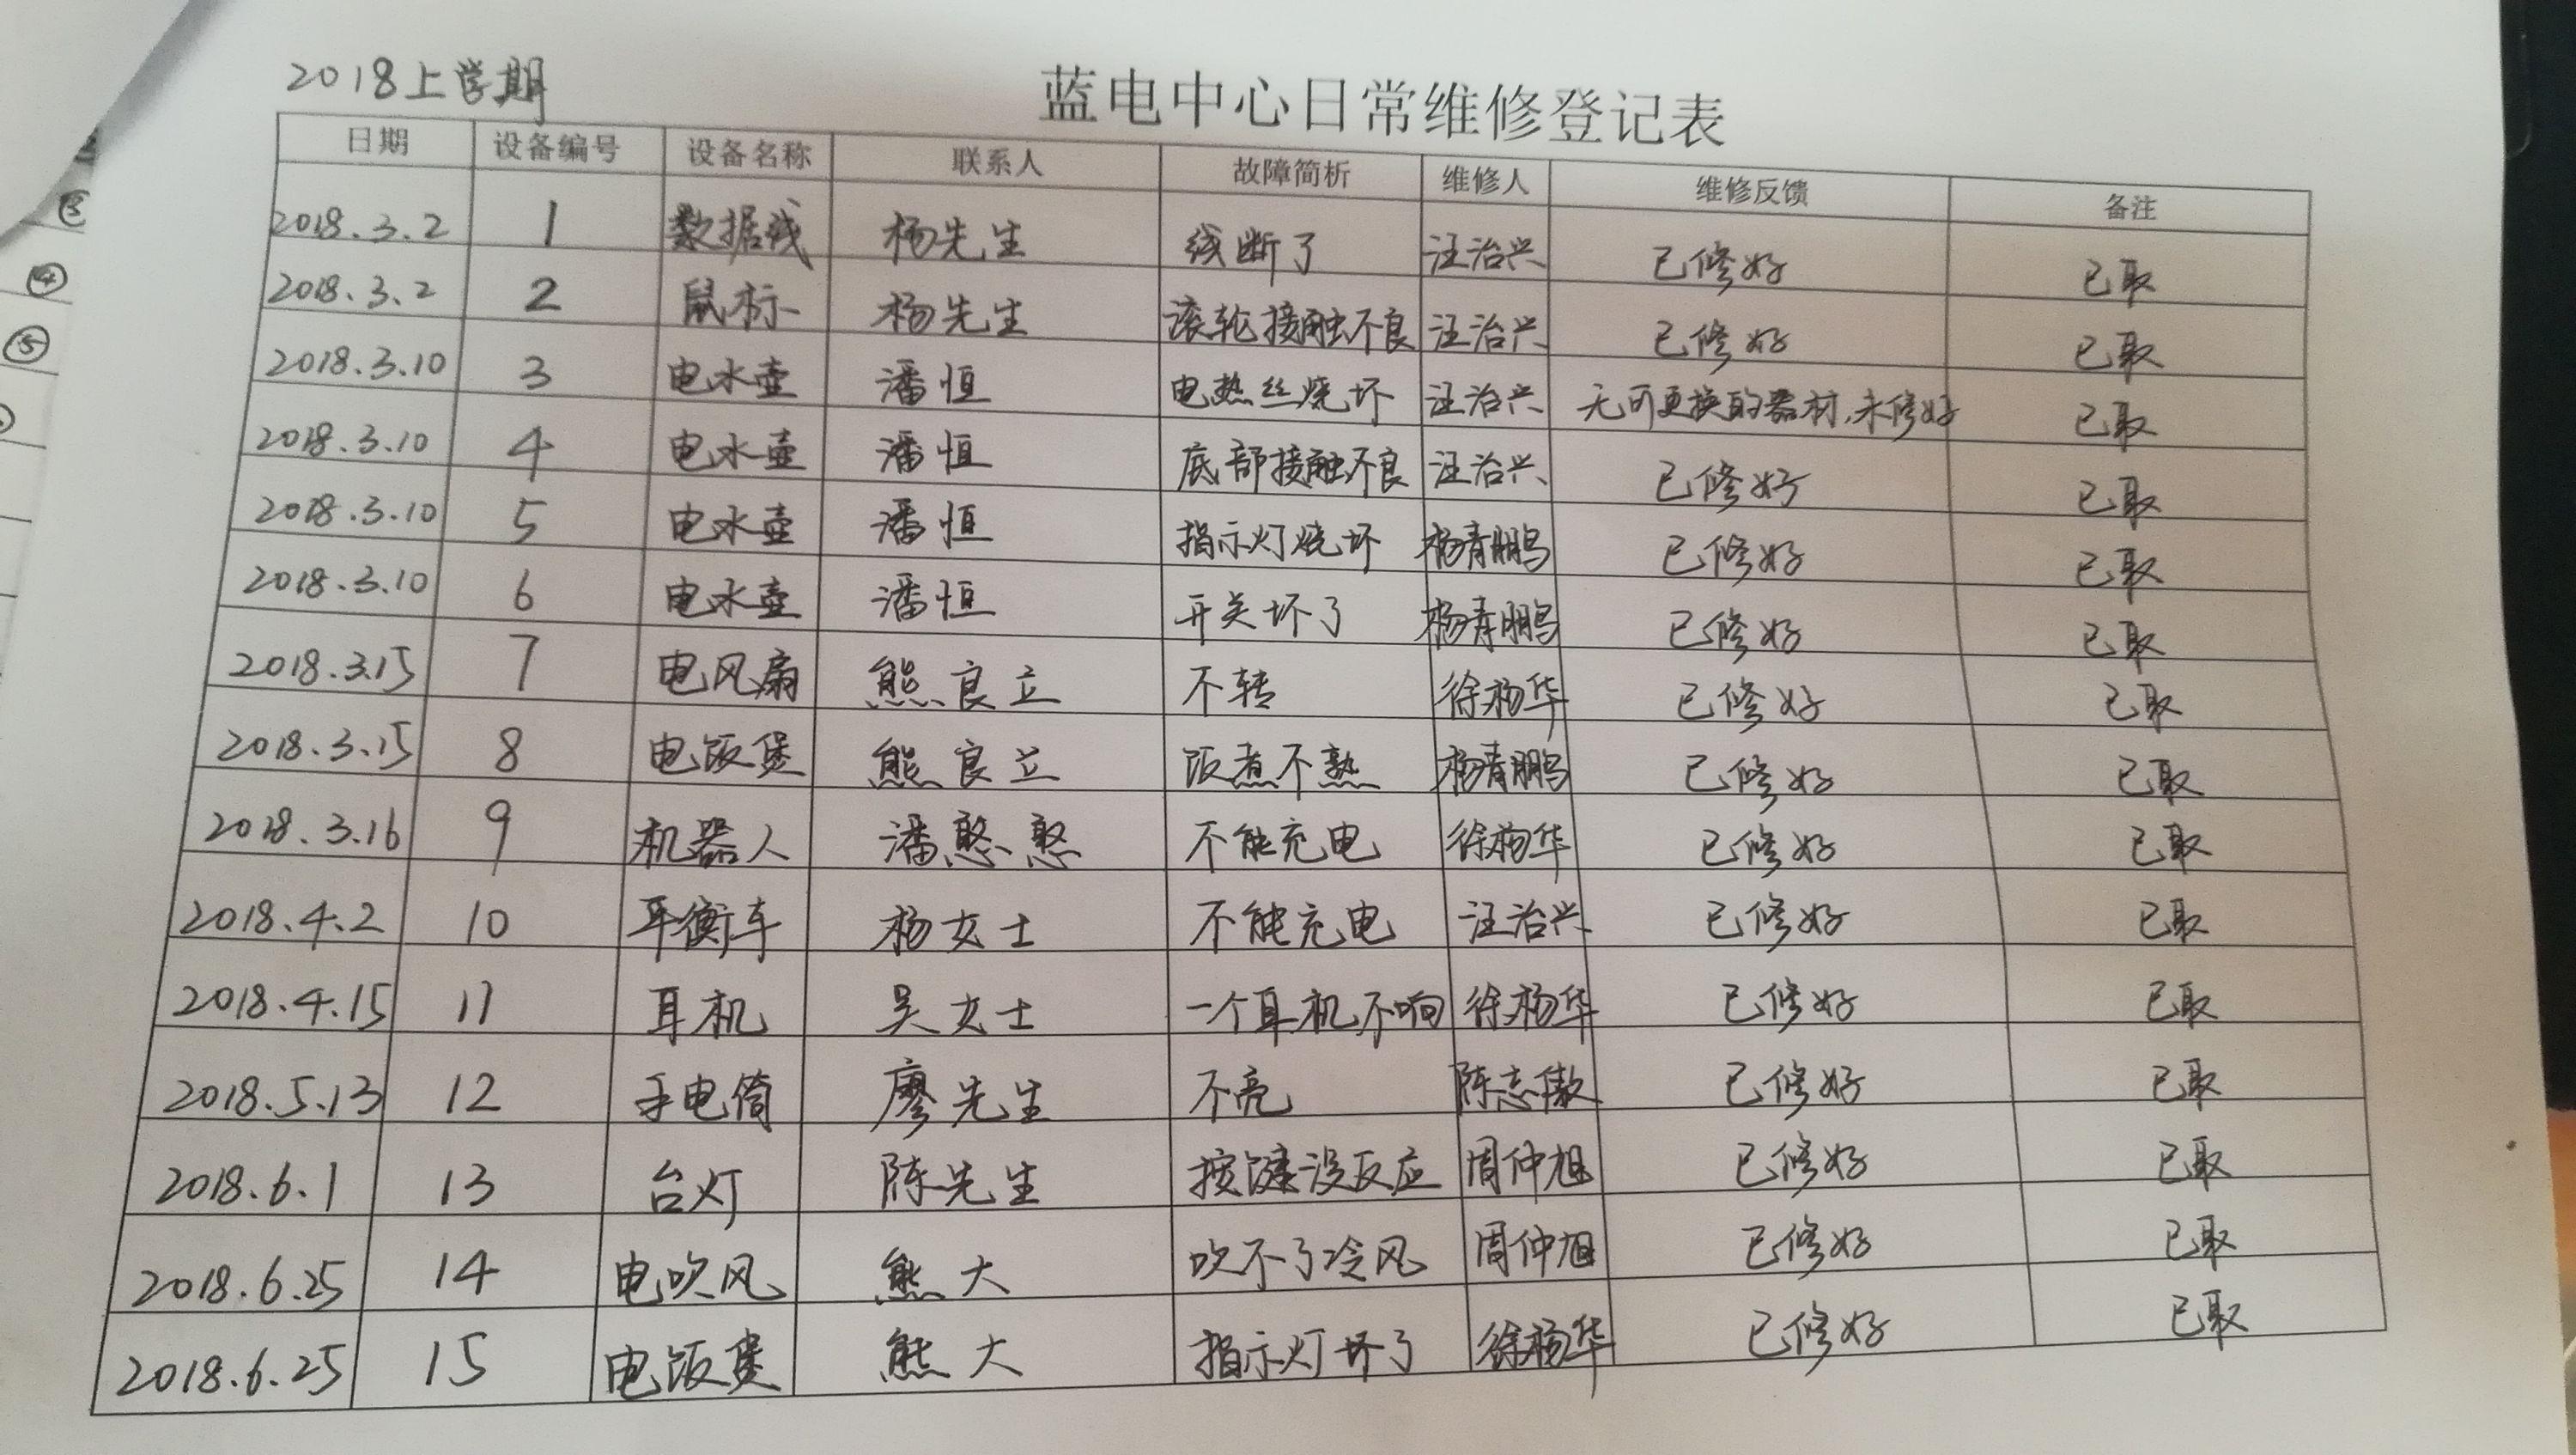 2018上学期
蓝电中心日常维修登记表
日期 设备编号 设备名称 联系人 故障简析 维修人 维修反馈 备注
2018.3.2 1 数据线 杨先生 线断了 汪治兴 已修好 已取
2018.3.2 2 鼠标 杨先生 滚轮接触不良 汪治兴 已修好 已取
2018.3.10 3 电水壶 潘恒 电热丝烧坏 汪治兴 无可更换的器材,未修好 已取
2018.3.10 4 电水壶 潘恒 底部接触不良 汪治兴 已修好 已取
2018.3.10 5 电水壶 潘恒 指示灯烧坏 杨青鹏 已修好 已取
2018.3.10 6 电水壶 潘恒 开关坏了 杨青鹏 已修好 已取
2018.3.15 7 电风扇 熊良立 不转 徐杨华 已修好 已取
2018.3.15 8 电饭煲 熊良立 饭煮不熟 杨青鹏 已修好 已取
2018.3.16 9 机器人 潘憨憨 不能充电 徐杨华 已修好 已取
2018.4.2 10 平衡车 杨女士 不能充电 汪治兴 已修好 已取
2018.4.15 11 耳机 吴女士 一个耳机不响 徐杨华 已修好 已取
2018.5.13 12 手电筒 廖先生 不亮 陈志傲 已修好 已取
2018.6.1 13 台灯 陈先生 按键没反应 周仲旭 已修好 已取
2018.6.25 14 电吹风 熊大 吹不了冷风 周仲旭 已修好 已取
2018.6.25 15 电饭煲 熊大 指示灯坏了 徐杨华 已修好 已取
③
④
⑤